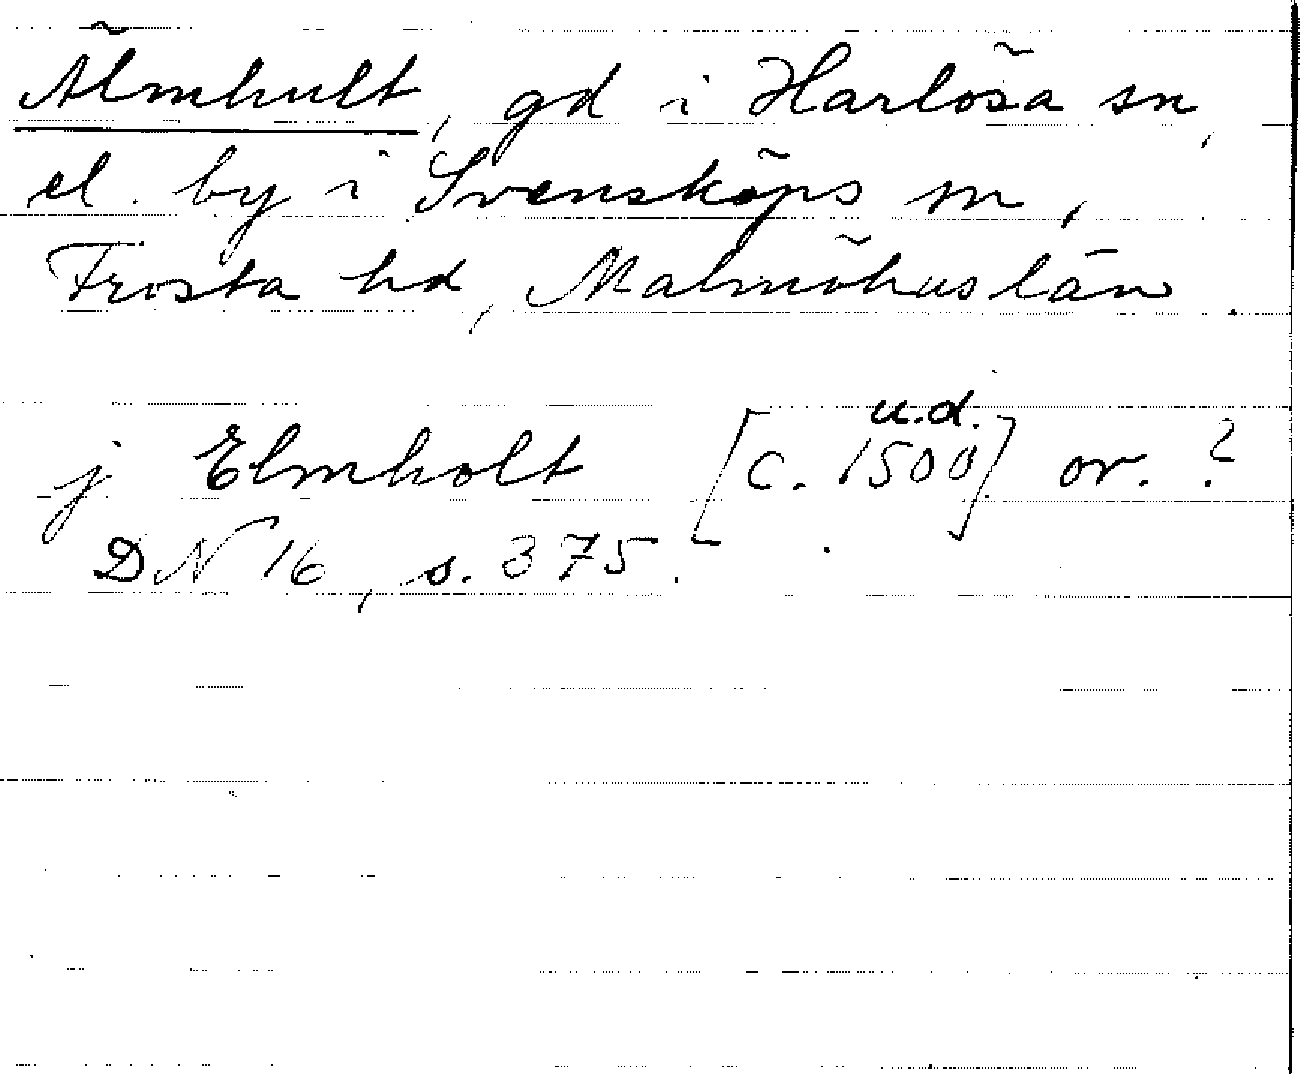 Älmhult, gd i Harlösa sn,
el. by i Svensköps sn,
Frosta hd, Malmöhus län.
u.d.
j Elmholt [c. 1500] or. ?
DN 16, s. 375.